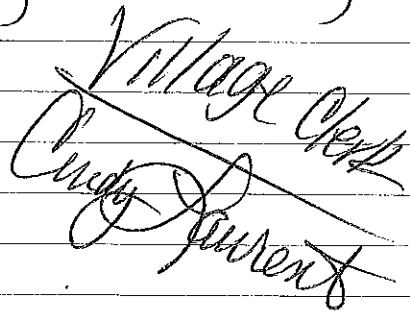 Village Clerk
Cindy Laurent